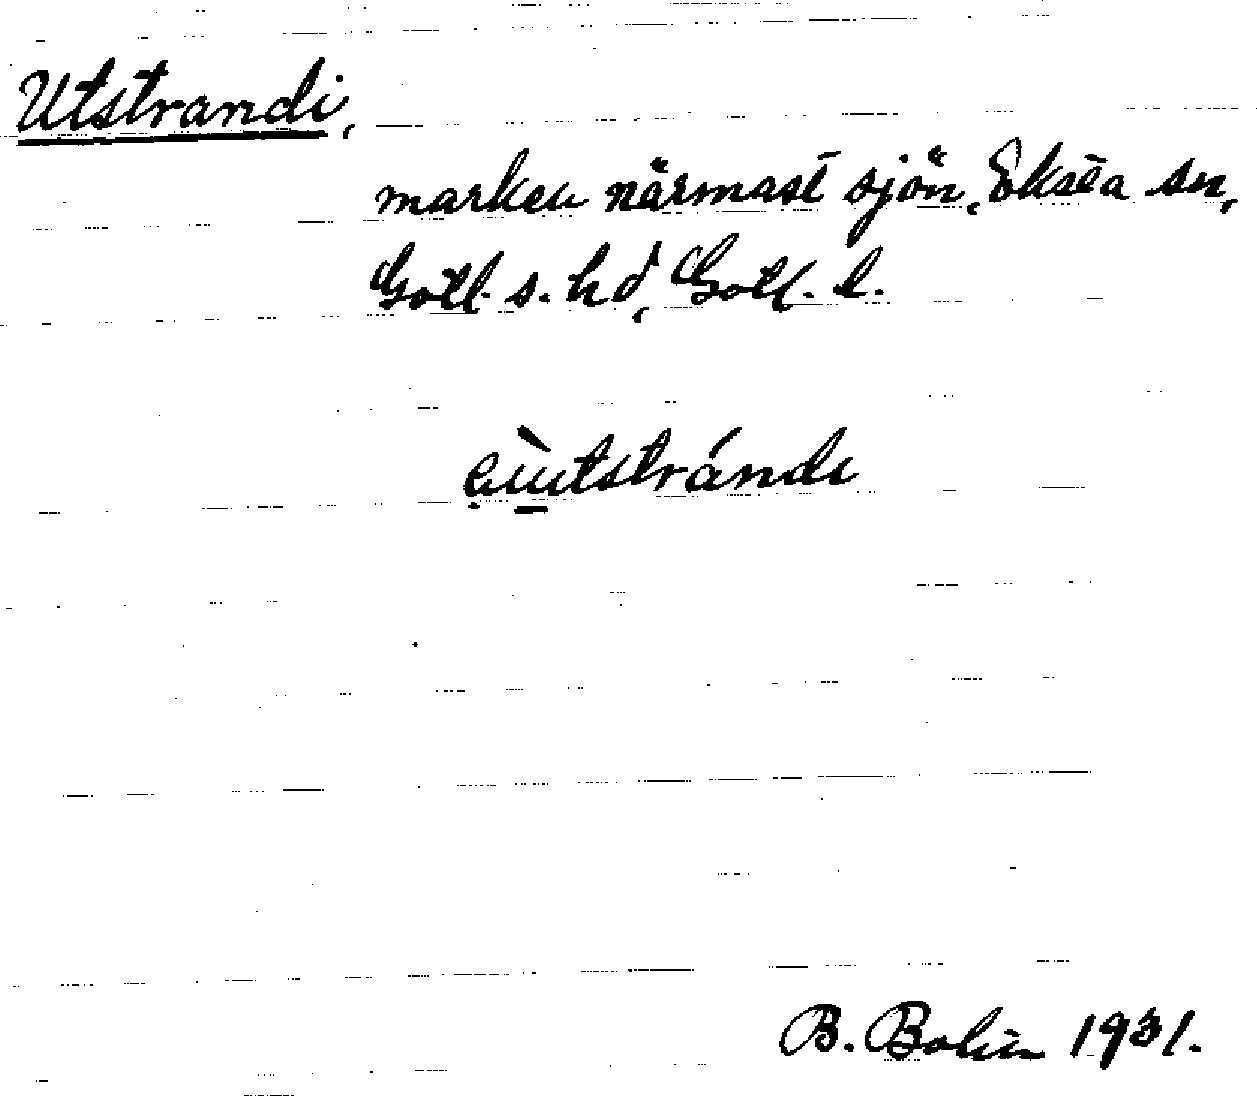 Utstrandi,
marken närmast sjön, Eksta sn,
Gotl. s. hd, Gotl. l.
eùtstrándi
B. Bolin 1931.